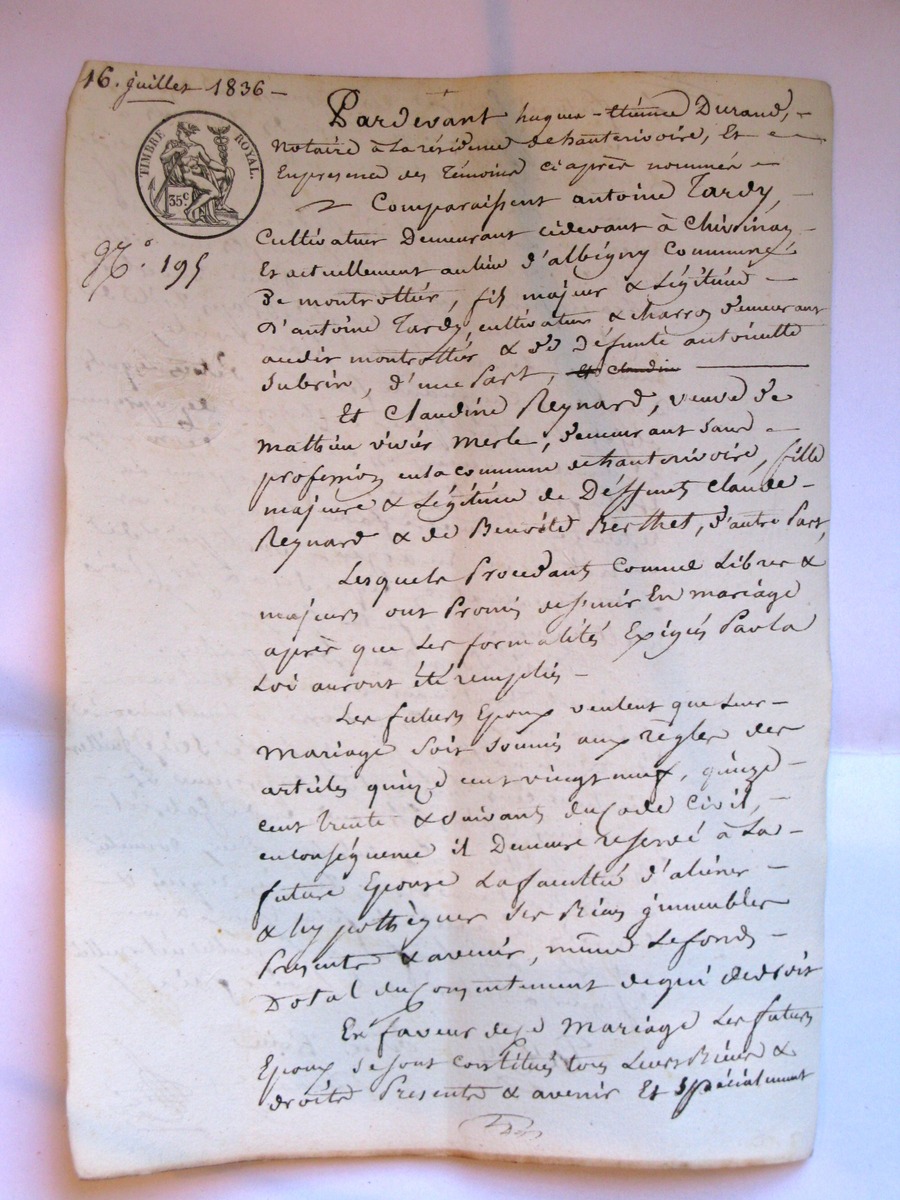 16. juillet 1836 –
TIMBRE ROYAL.
35 c.
N.º 195
Pardevant hugues-étienne Durand, –
Notaire à la résidence de hauterivoire, Et –
En presence des Témoins ci après nommés –
Comparaissent antoine Tardy, –
Cultivateur Demeurant cidevant à Chevinay –
Et actuellement au lieu d'albigny Commune
De montrottier, fils majeur & Légitime –
D'antoine Tardy, cultivateur & charron demeurant
audit montrottier & de Défunte antoinette
Subrin, d'une Part, Et Claudine
Et Claudine Reynard, veuve de
Mathieu vivier merle, demeurant sans –
profession en la commune de hauterivoire, fille
majeure & Légitime de Déffunts Claude –
Reynard & de Benoite Berthet, d'autre Part,
Lesquels Procédant Comme Libres &
majeurs ont Promis de s'unir En mariage
après que Les formalités Exigés Par la
Loi auront été remplies –
Les futurs Epoux veulent que Leur –
Mariage soit soumis aux règles des
articles quinze cent vingt neuf, quinze –
cent trente & suivants du Code Civil, –
en conséquence il Demeure reservé à La –
future Epouse La faculté d'aliéner –
& hypothèquer ses Biens immeubles
Presents & avenir, même Le fonds –
Dotal du Consentement de qui de droit
En faveur de ce Mariage Les futurs
Epoux se sont Constitués tous Leurs Biens &
droits Presents & avenir Et spécialement